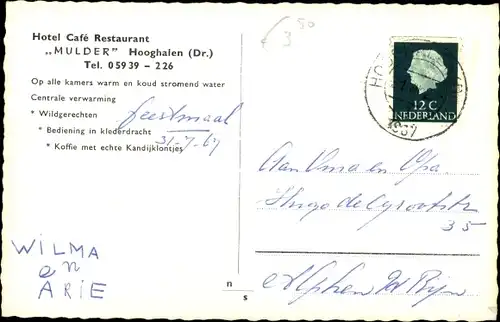 Hotel Café Restaurant
„MULDER" Hooghalen (Dr.)
Tel. 05939 - 226
Op alle kamers warm en koud stromend water
Centrale verwarming
* Wildgerechten
* Bediening in klederdracht
* Koffie met echte Kandijklontjes
feestmaal
31-7-67
WILMA
en
ARIE
n
s
€ 3 50
12 C
NEDERLAND
1967
Aan Oma en Opa.
Hugo de Grootstr
35
Alphen a/d Rijn